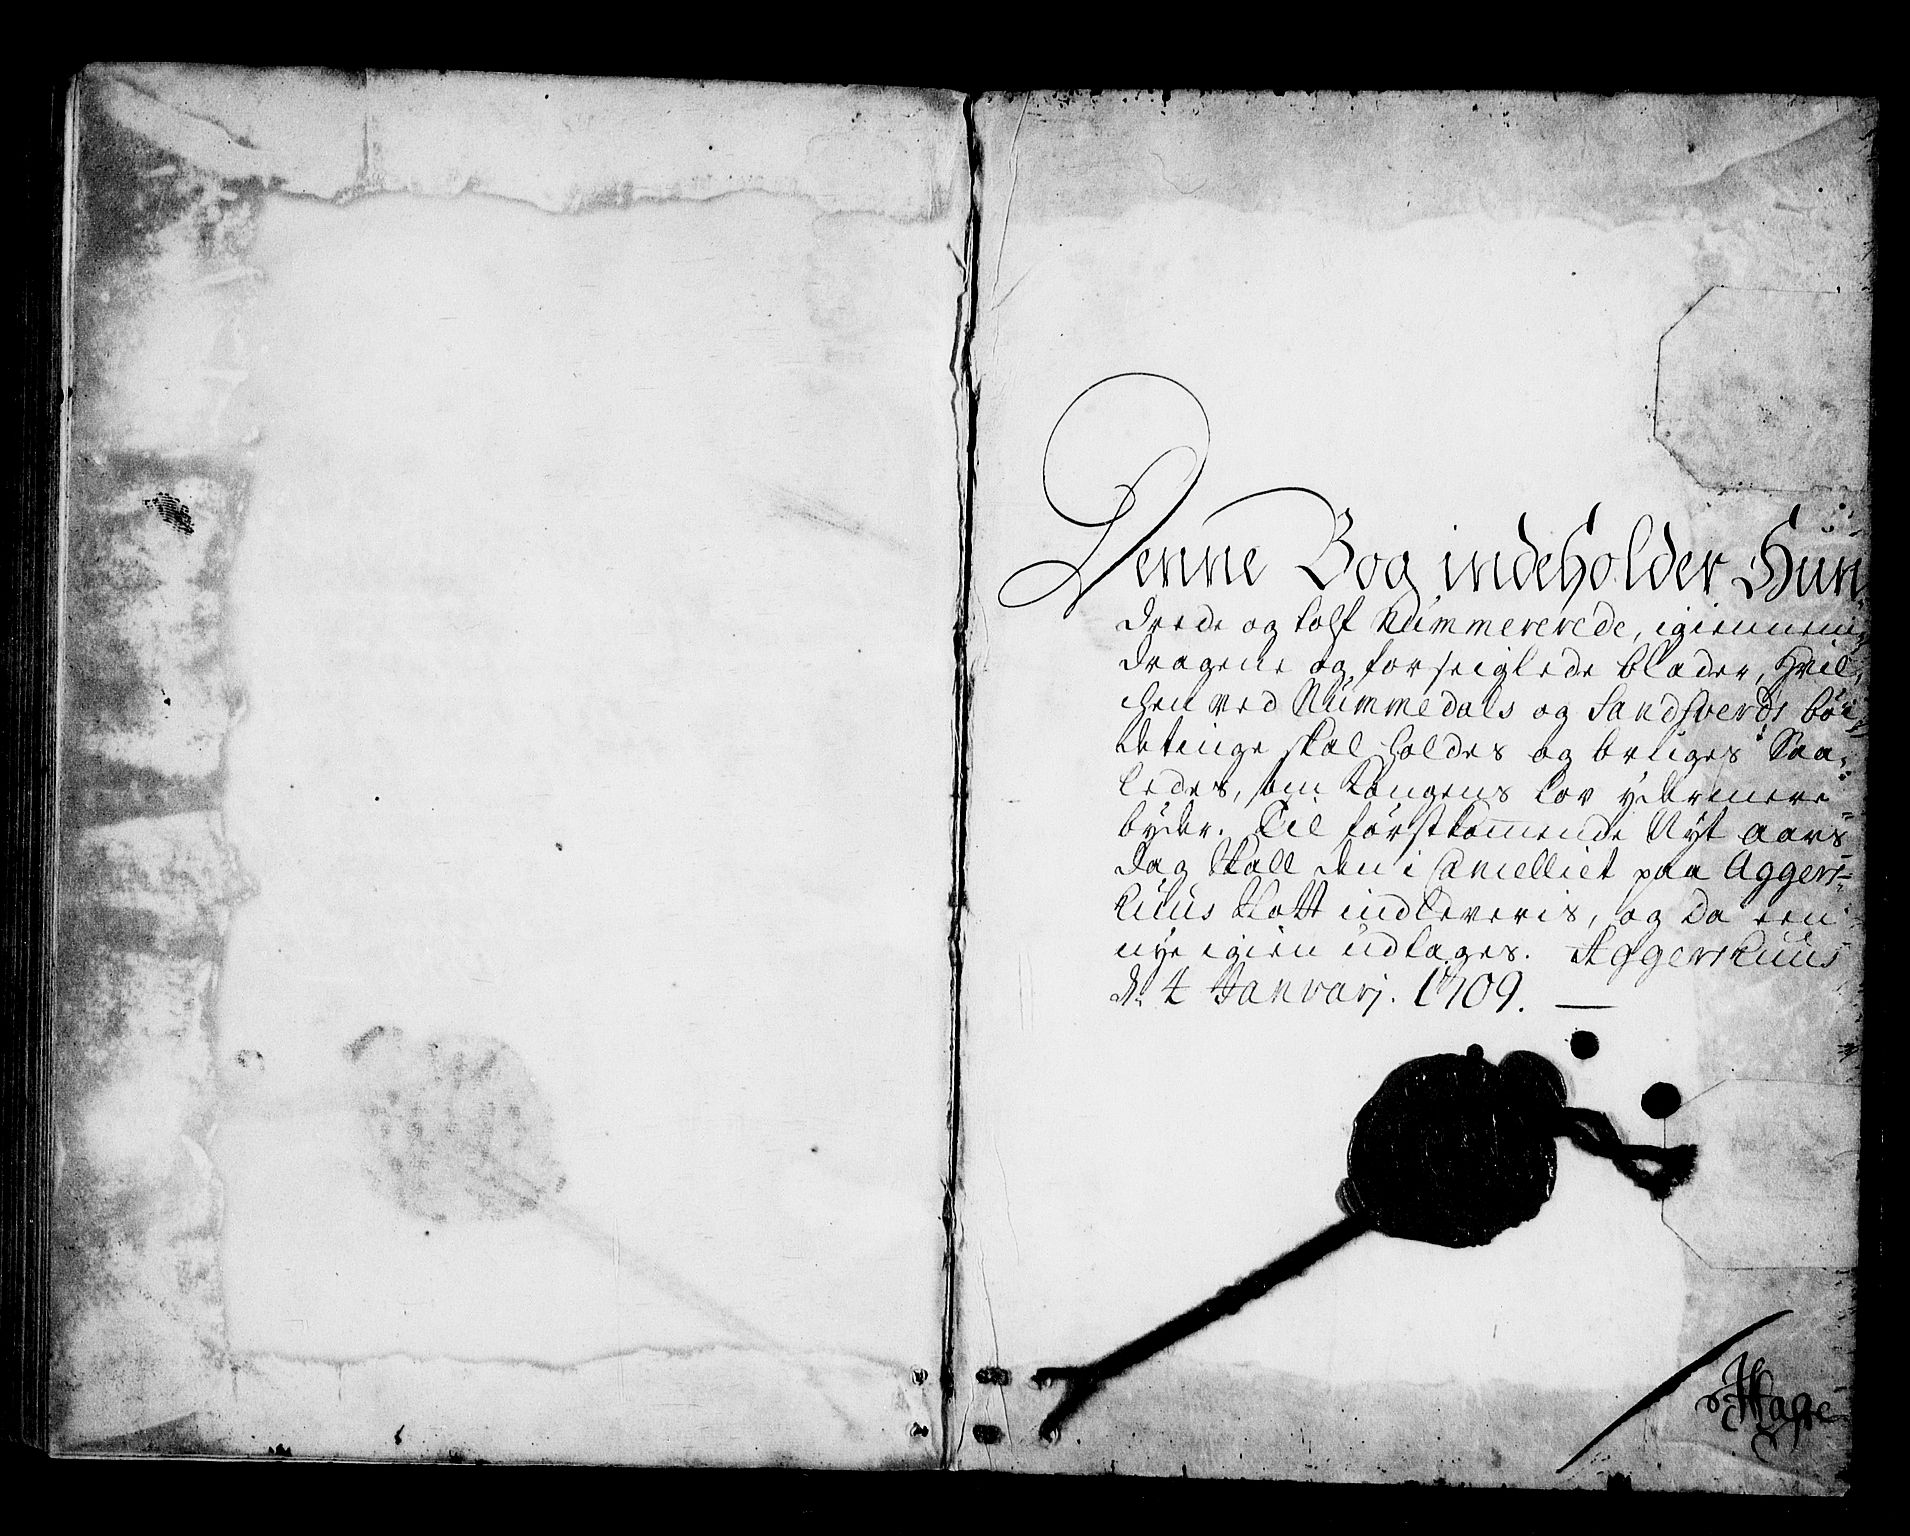 Denne Bog indeholder Hun-
drede og tolf Nummererede, igiennem-
dragene og forseiglede blader, Hvil-
chen ved Nummedals og Sandsverds böi-
detinge skal holdes og bruges Saa-
ledes, som Kongens lov ydermere
byder. Til förstkommende Nyt aars-
dag skall den i Cancelliet paa Aggers-
huus Slott indleveris, og da een
nye igien udtages. Aggershuus
d. 4 Januarj. 1709.